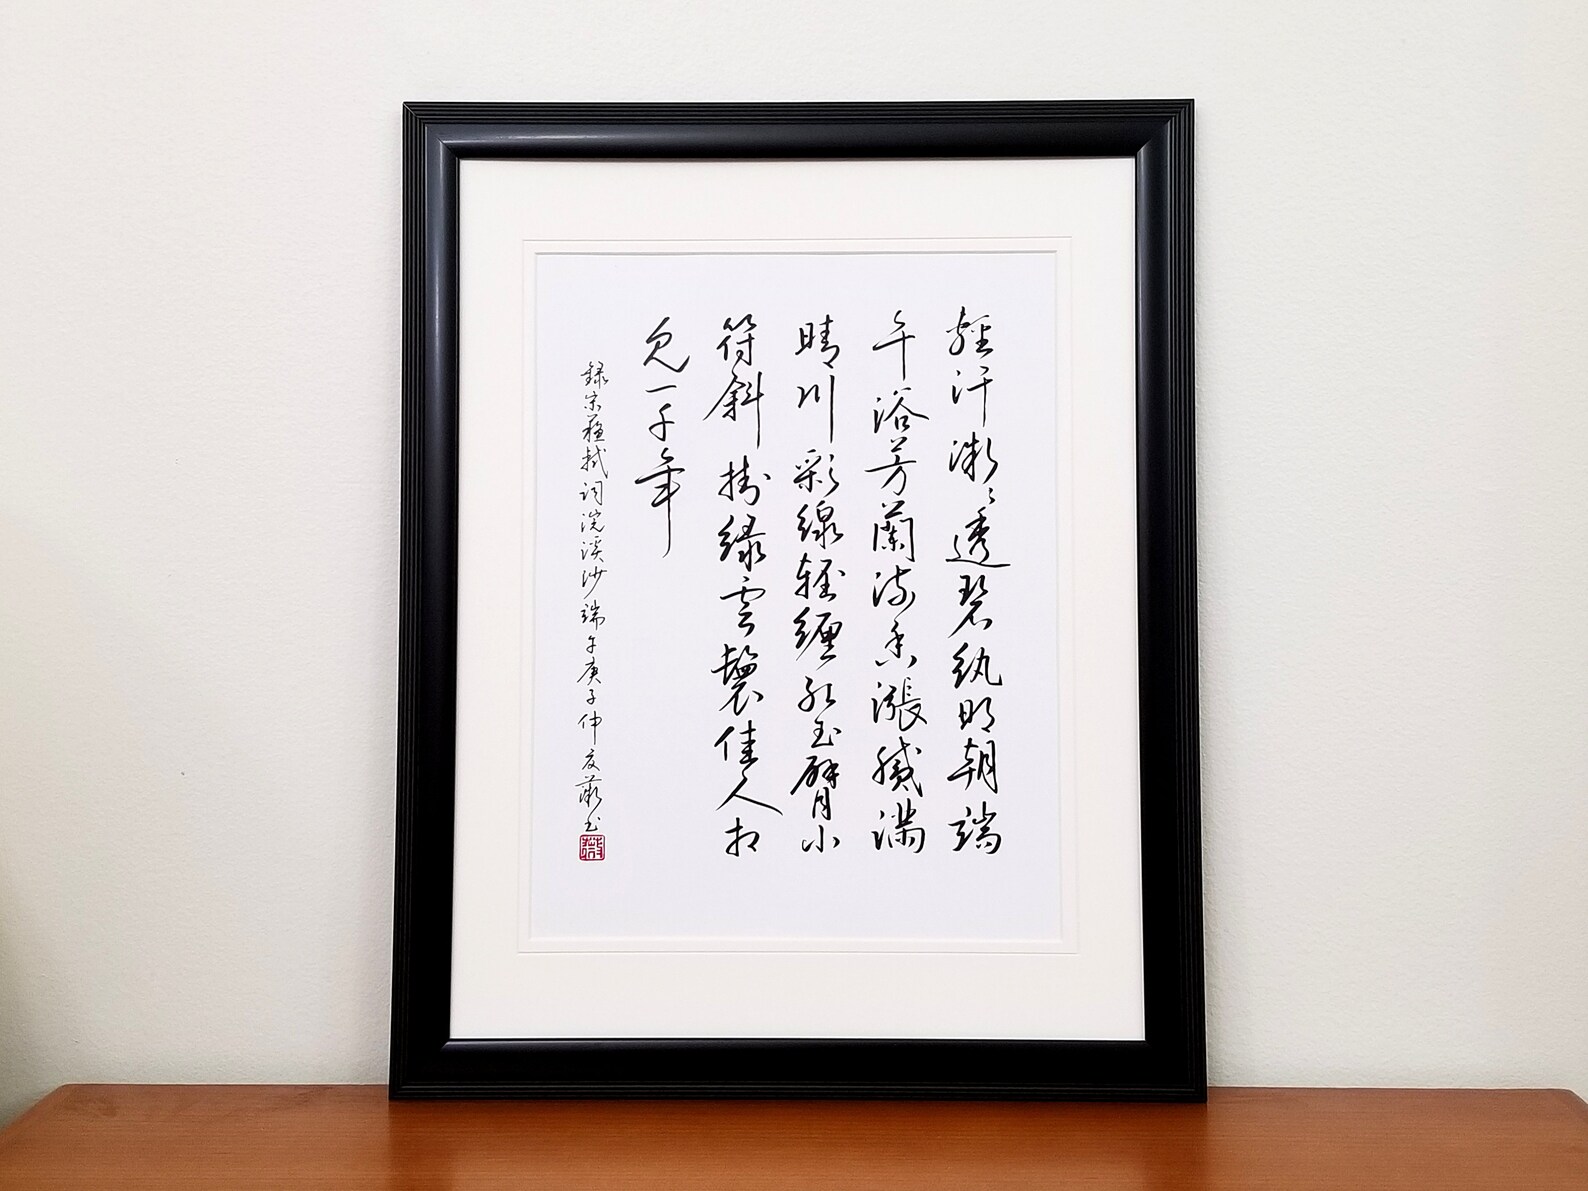 輕汗微〻透碧紈明朝端
午浴芳蘭流香漲膩滿
晴川彩線輕纏紅玉臂小
符斜掛綠雲鬟佳人相
見一千年
録宋蘇軾詞浣溪沙端午庚子仲夏薇書
薇